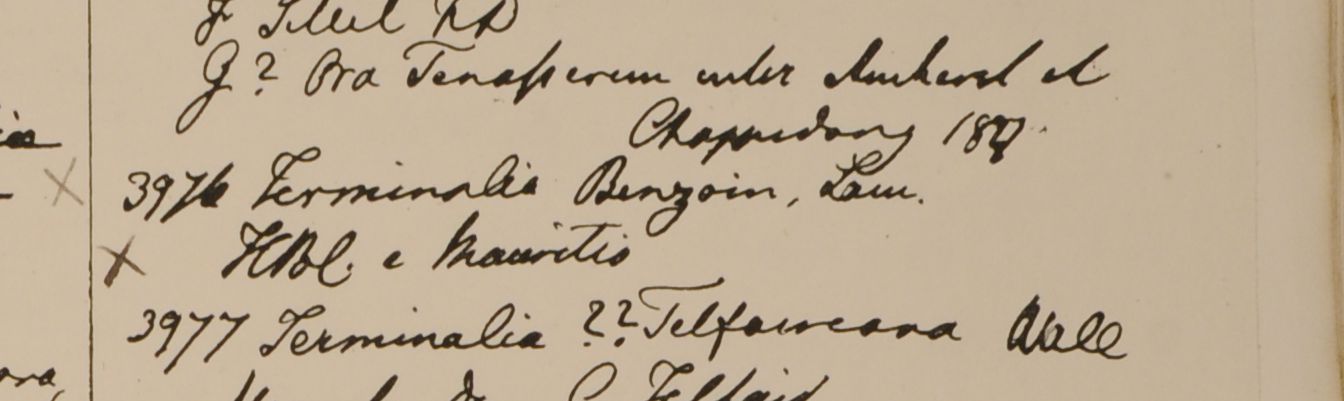 F Sillet FD
G? Ora Tenasserim inter Amherst et
Chappedong 1827.
3976 Terminalia Benzoin, Lam.
HBC. e Mauritio
3977 Terminalia ?? Telfaireana Wall
C Telfair